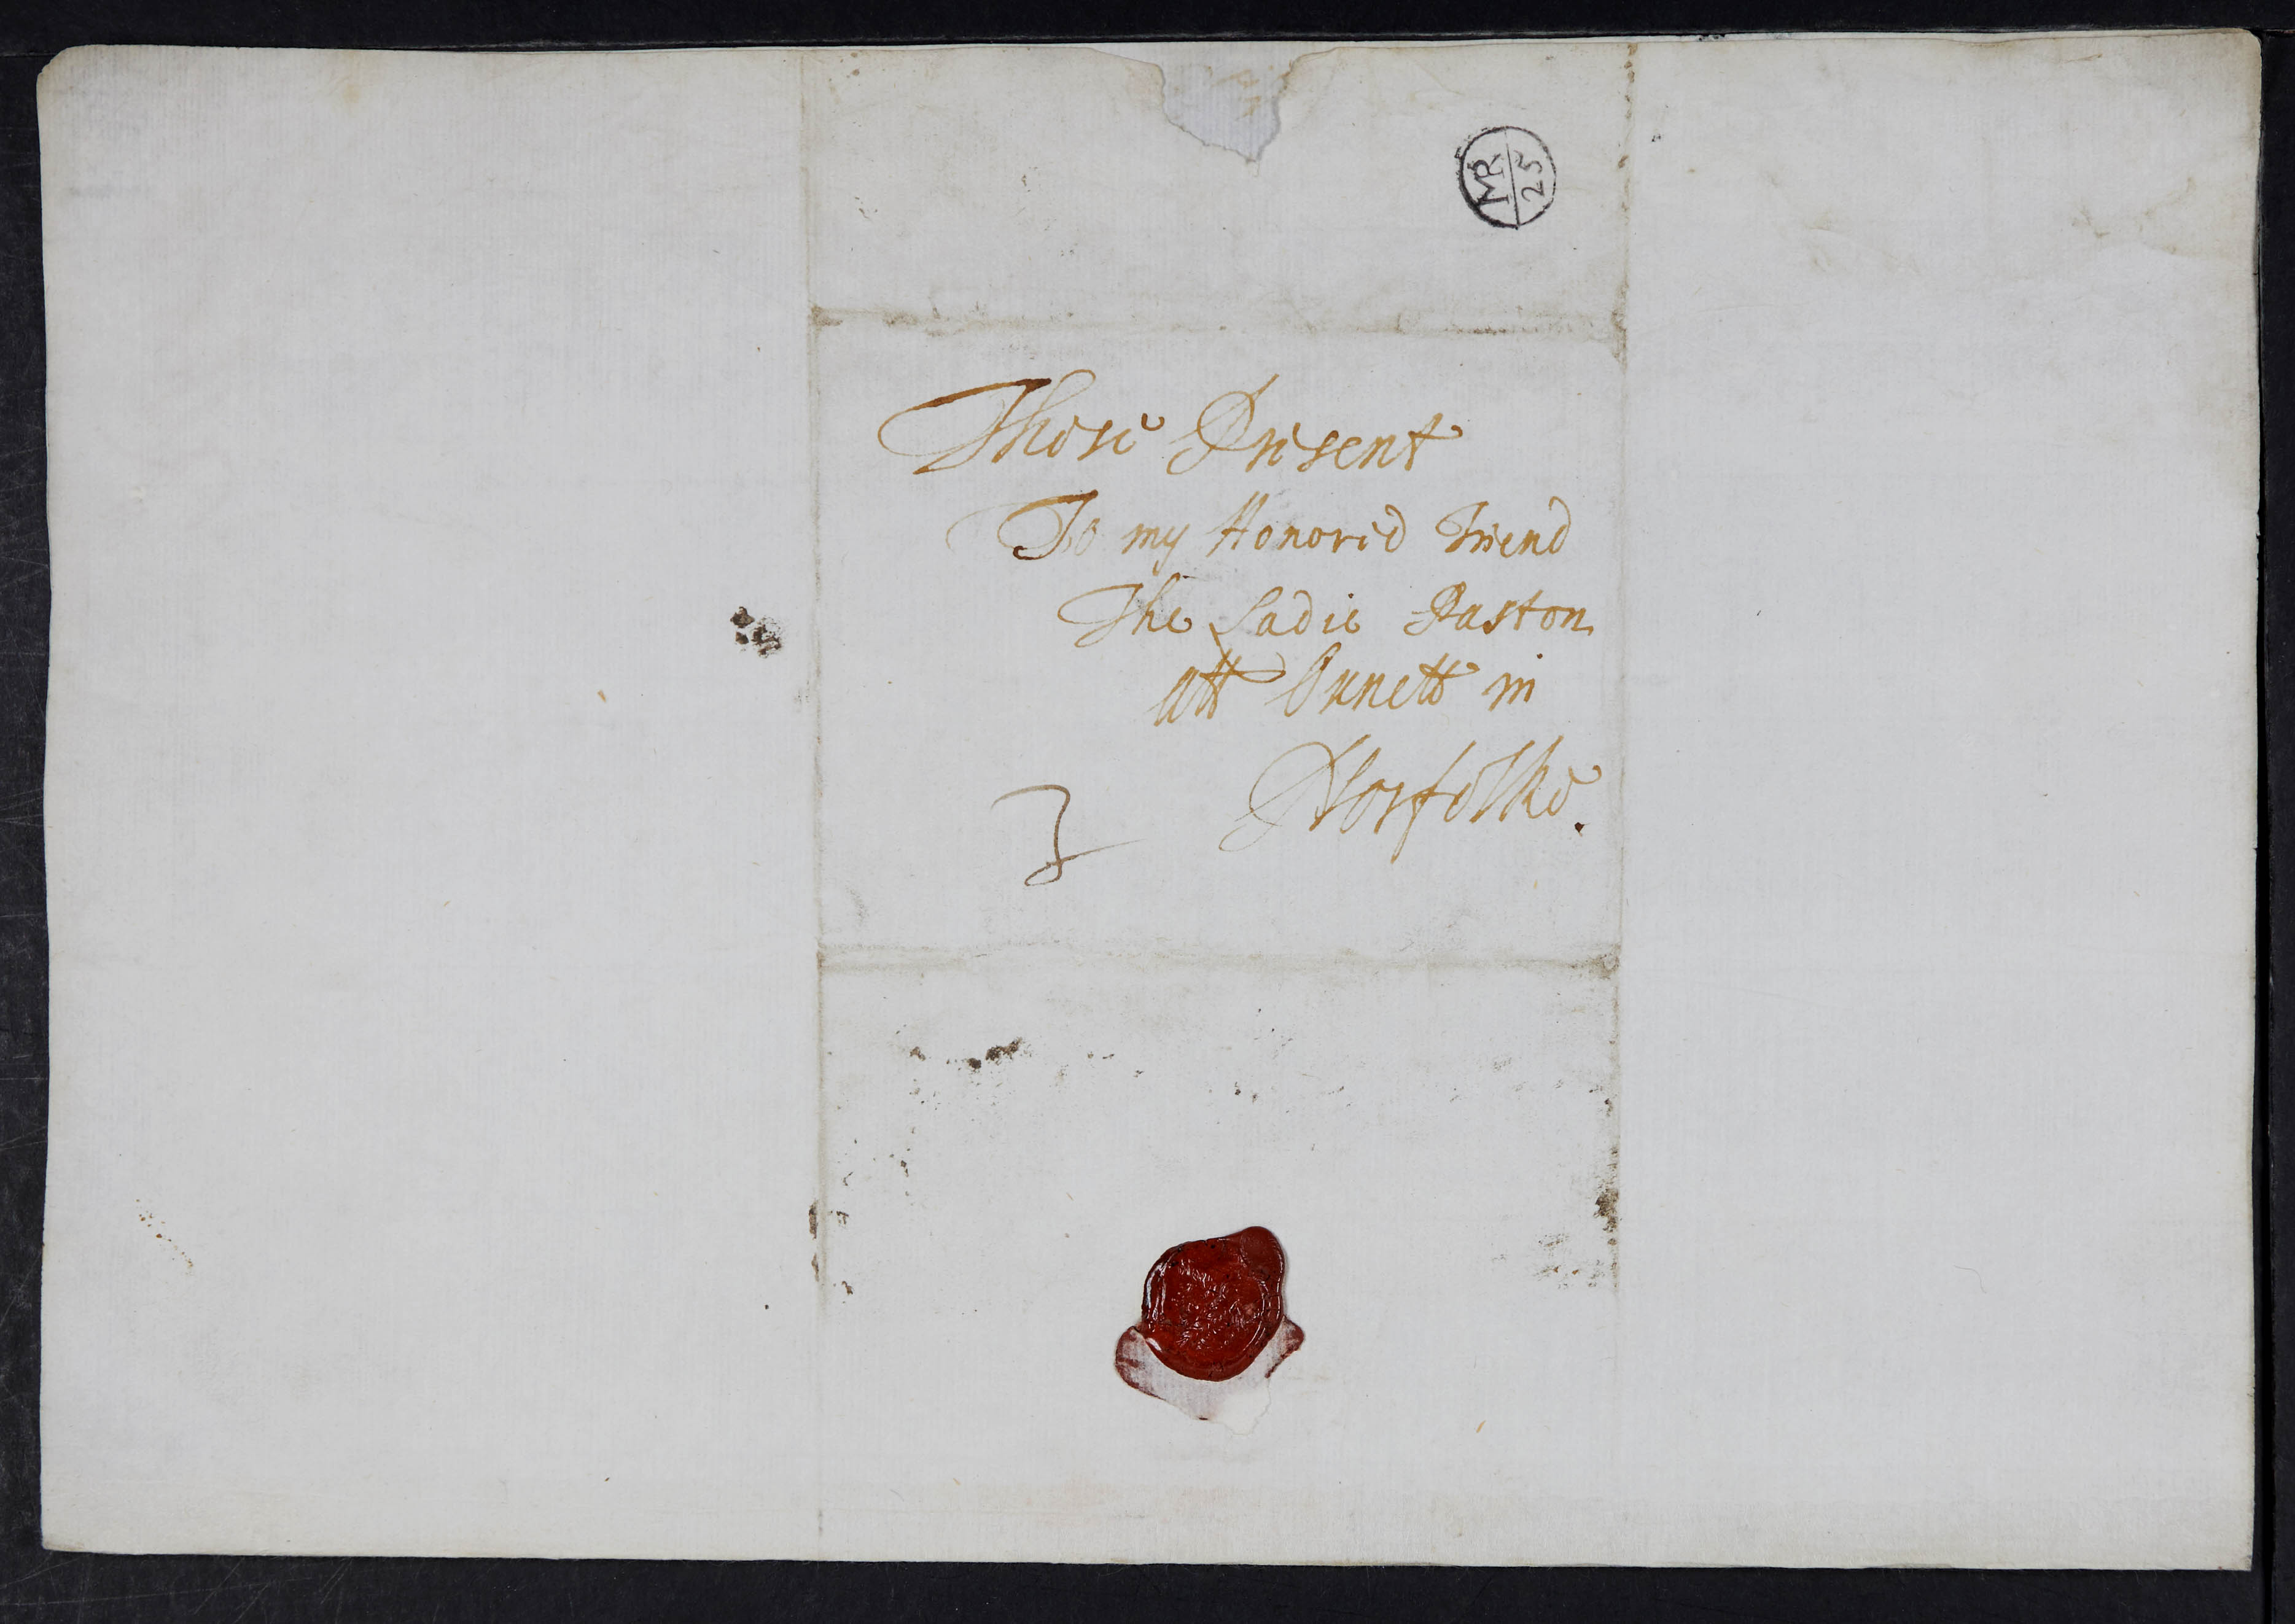 MR
25
These Present
To my Honored Friend
The Ladie Paston
att Oxnett in
Norfolke.
3